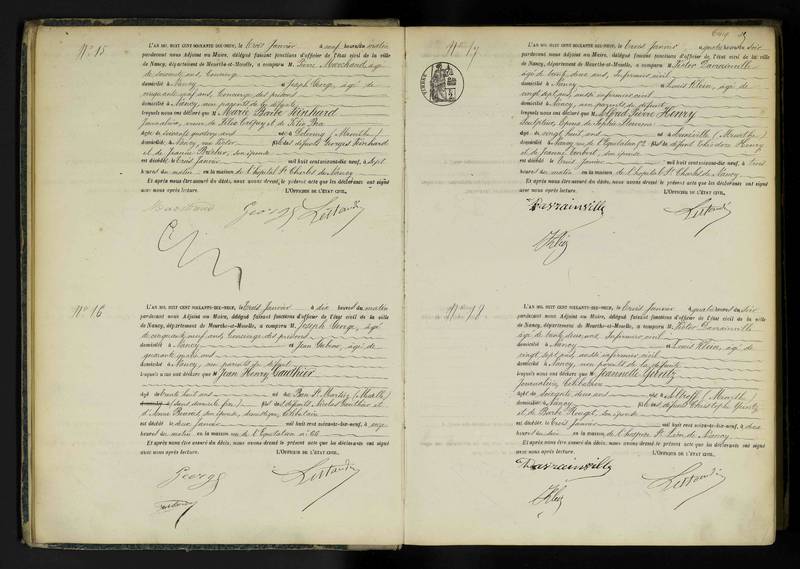 N° 15
L'AN MIL HUIT CENT SOIXANTE-DIX-NEUF, le trois Janvier à neuf heures du matin
pardevant nous Adjoint au Maire, délégué faisant fonctions d'officier de l'état civil de la ville
de Nancy, département de Meurthe-et-Moselle, a comparu M. Pierre Marchand, âgé
de soixante ans, Concierge
domicilié à Nancy et Joseph George, âgé de
cinquante neuf ans, Concierge des prisons
domicilié à Nancy, non parents de la défunte
lesquels nous ont déclaré que Marie Barbe Reinhard
Journalière, veuve de
âgée de soixante quatorze ans née à Delme (Meurthe)
domiciliée à Nancy, fille des défunts Georges Reinhard
et de Jeanne Barbier, son épouse
est décédée le trois Janvier mil huit cent soixante-dix-neuf, à sept
heures du matin en la maison de l'hôpital St Charles de Nancy
Et après nous être assuré du décès, nous avons dressé le présent acte que les déclarants ont signé
avec nous après lecture. L'OFFICIER DE L'ÉTAT CIVIL,
Marchand George
N° 16
L'AN MIL HUIT CENT SOIXANTE-DIX-NEUF, le trois Janvier à dix heures du matin
pardevant nous Adjoint au Maire, délégué faisant fonctions d'officier de l'état civil de la ville
de Nancy, département de Meurthe-et-Moselle, a comparu M. Joseph George, âgé
de cinquante neuf ans, Concierge des prisons
domicilié à Nancy et Jean
quarante quatre ans
domicilié à Nancy, non parents du défunt
lesquels nous ont déclaré que Jean Henry Gauthier
âgé de trente huit ans né à Ban St Martin (Moselle)
(sans domicile fixe) fils des défunts Nicolas Gauthier et
d'Anne son épouse, domestique, Célibataire
est décédé le deux Janvier mil huit cent soixante-dix-neuf, à onze
heures du matin en la maison rue de l'Equitation
Et après nous être assuré du décès, nous avons dressé le présent acte que les déclarants ont signé
avec nous après lecture. L'OFFICIER DE L'ÉTAT CIVIL,
George
N° 17
L'AN MIL HUIT CENT SOIXANTE-DIX-NEUF, le trois Janvier à quatre heures du soir
pardevant nous Adjoint au Maire, délégué faisant fonctions d'officier de l'état civil de la ville
de Nancy, département de Meurthe-et-Moselle, a comparu M. Victor Darrainville
âgé de trente deux ans, infirmier civil
domicilié à Nancy et Louis Klein, âgé de
vingt sept ans, aussi infirmier civil
domicilié à Nancy, non parents du défunt
lesquels nous ont déclaré que Alfred Pierre Henry
Sculpteur, époux de Sophie
âgé de vingt huit ans né à Lunéville (Meurthe)
domicilié à Nancy rue de l'Equitation fils de défunt Théodore Henry
et de Jeanne son épouse
est décédé le trois Janvier mil huit cent soixante-dix-neuf, à trois
heures du matin en la maison de l'hôpital St Charles de Nancy
Et après nous être assuré du décès, nous avons dressé le présent acte que les déclarants ont signé
avec nous après lecture. L'OFFICIER DE L'ÉTAT CIVIL,
Darrainville
Klein
N° 18
L'AN MIL HUIT CENT SOIXANTE-DIX-NEUF, le trois Janvier à quatre heures du soir
pardevant nous Adjoint au Maire, délégué faisant fonctions d'officier de l'état civil de la ville
de Nancy, département de Meurthe-et-Moselle, a comparu M. Victor Darrainville
âgé de trente deux ans, infirmier civil
domicilié à Nancy et Louis Klein, âgé de
vingt sept ans, aussi infirmier civil
domicilié à Nancy, non parents de la défunte
lesquels nous ont déclaré que Jeannette
Journalière, Célibataire
âgée de soixante deux ans née à Albestroff (Meurthe)
domiciliée à Nancy fille des défunts Christophe
et de Barbe son épouse
est décédée le trois Janvier mil huit cent soixante-dix-neuf, à deux
heures du soir en la maison de l'hospice St Léon de Nancy
Et après nous être assuré du décès, nous avons dressé le présent acte que les déclarants ont signé
avec nous après lecture. L'OFFICIER DE L'ÉTAT CIVIL,
Darrainville
Klein